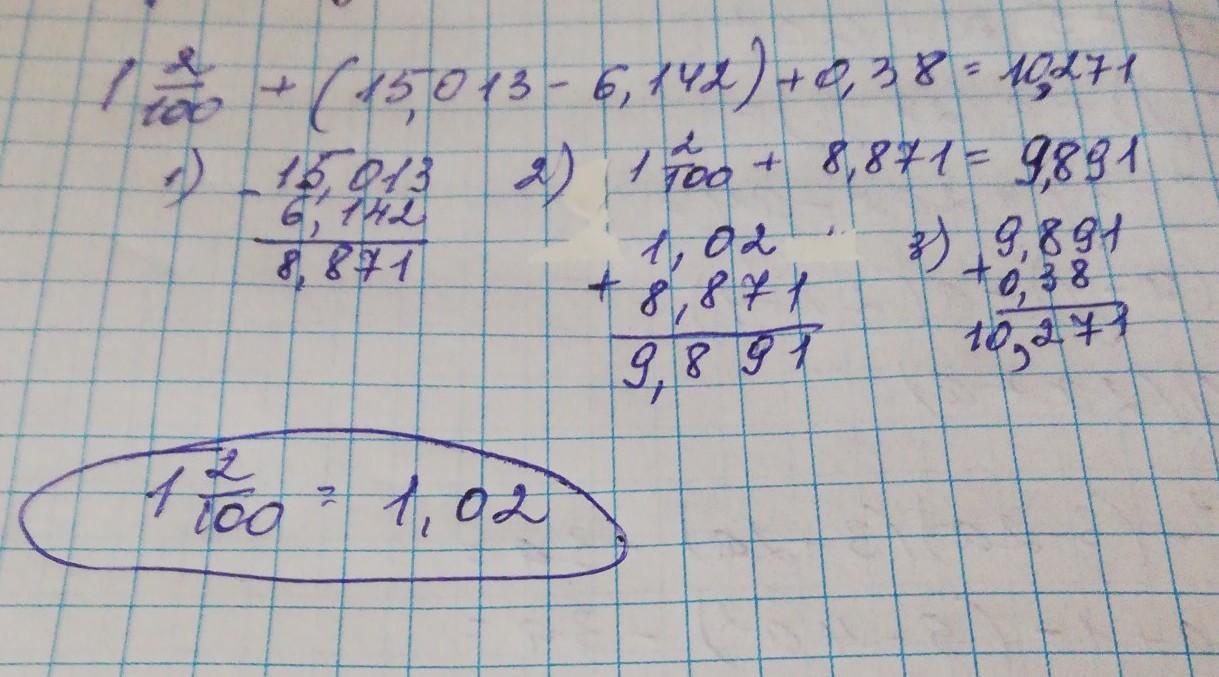 1 2/100 + (15,013 - 6,142) + 0,38 = 10,271
1) - 15,013
6,142
8,871
2) 1 2/100 + 8,871 = 9,891
1,02
+ 8,871
9,891
3) 9,891
+ 0,38
10,271
1 2/100 = 1,02